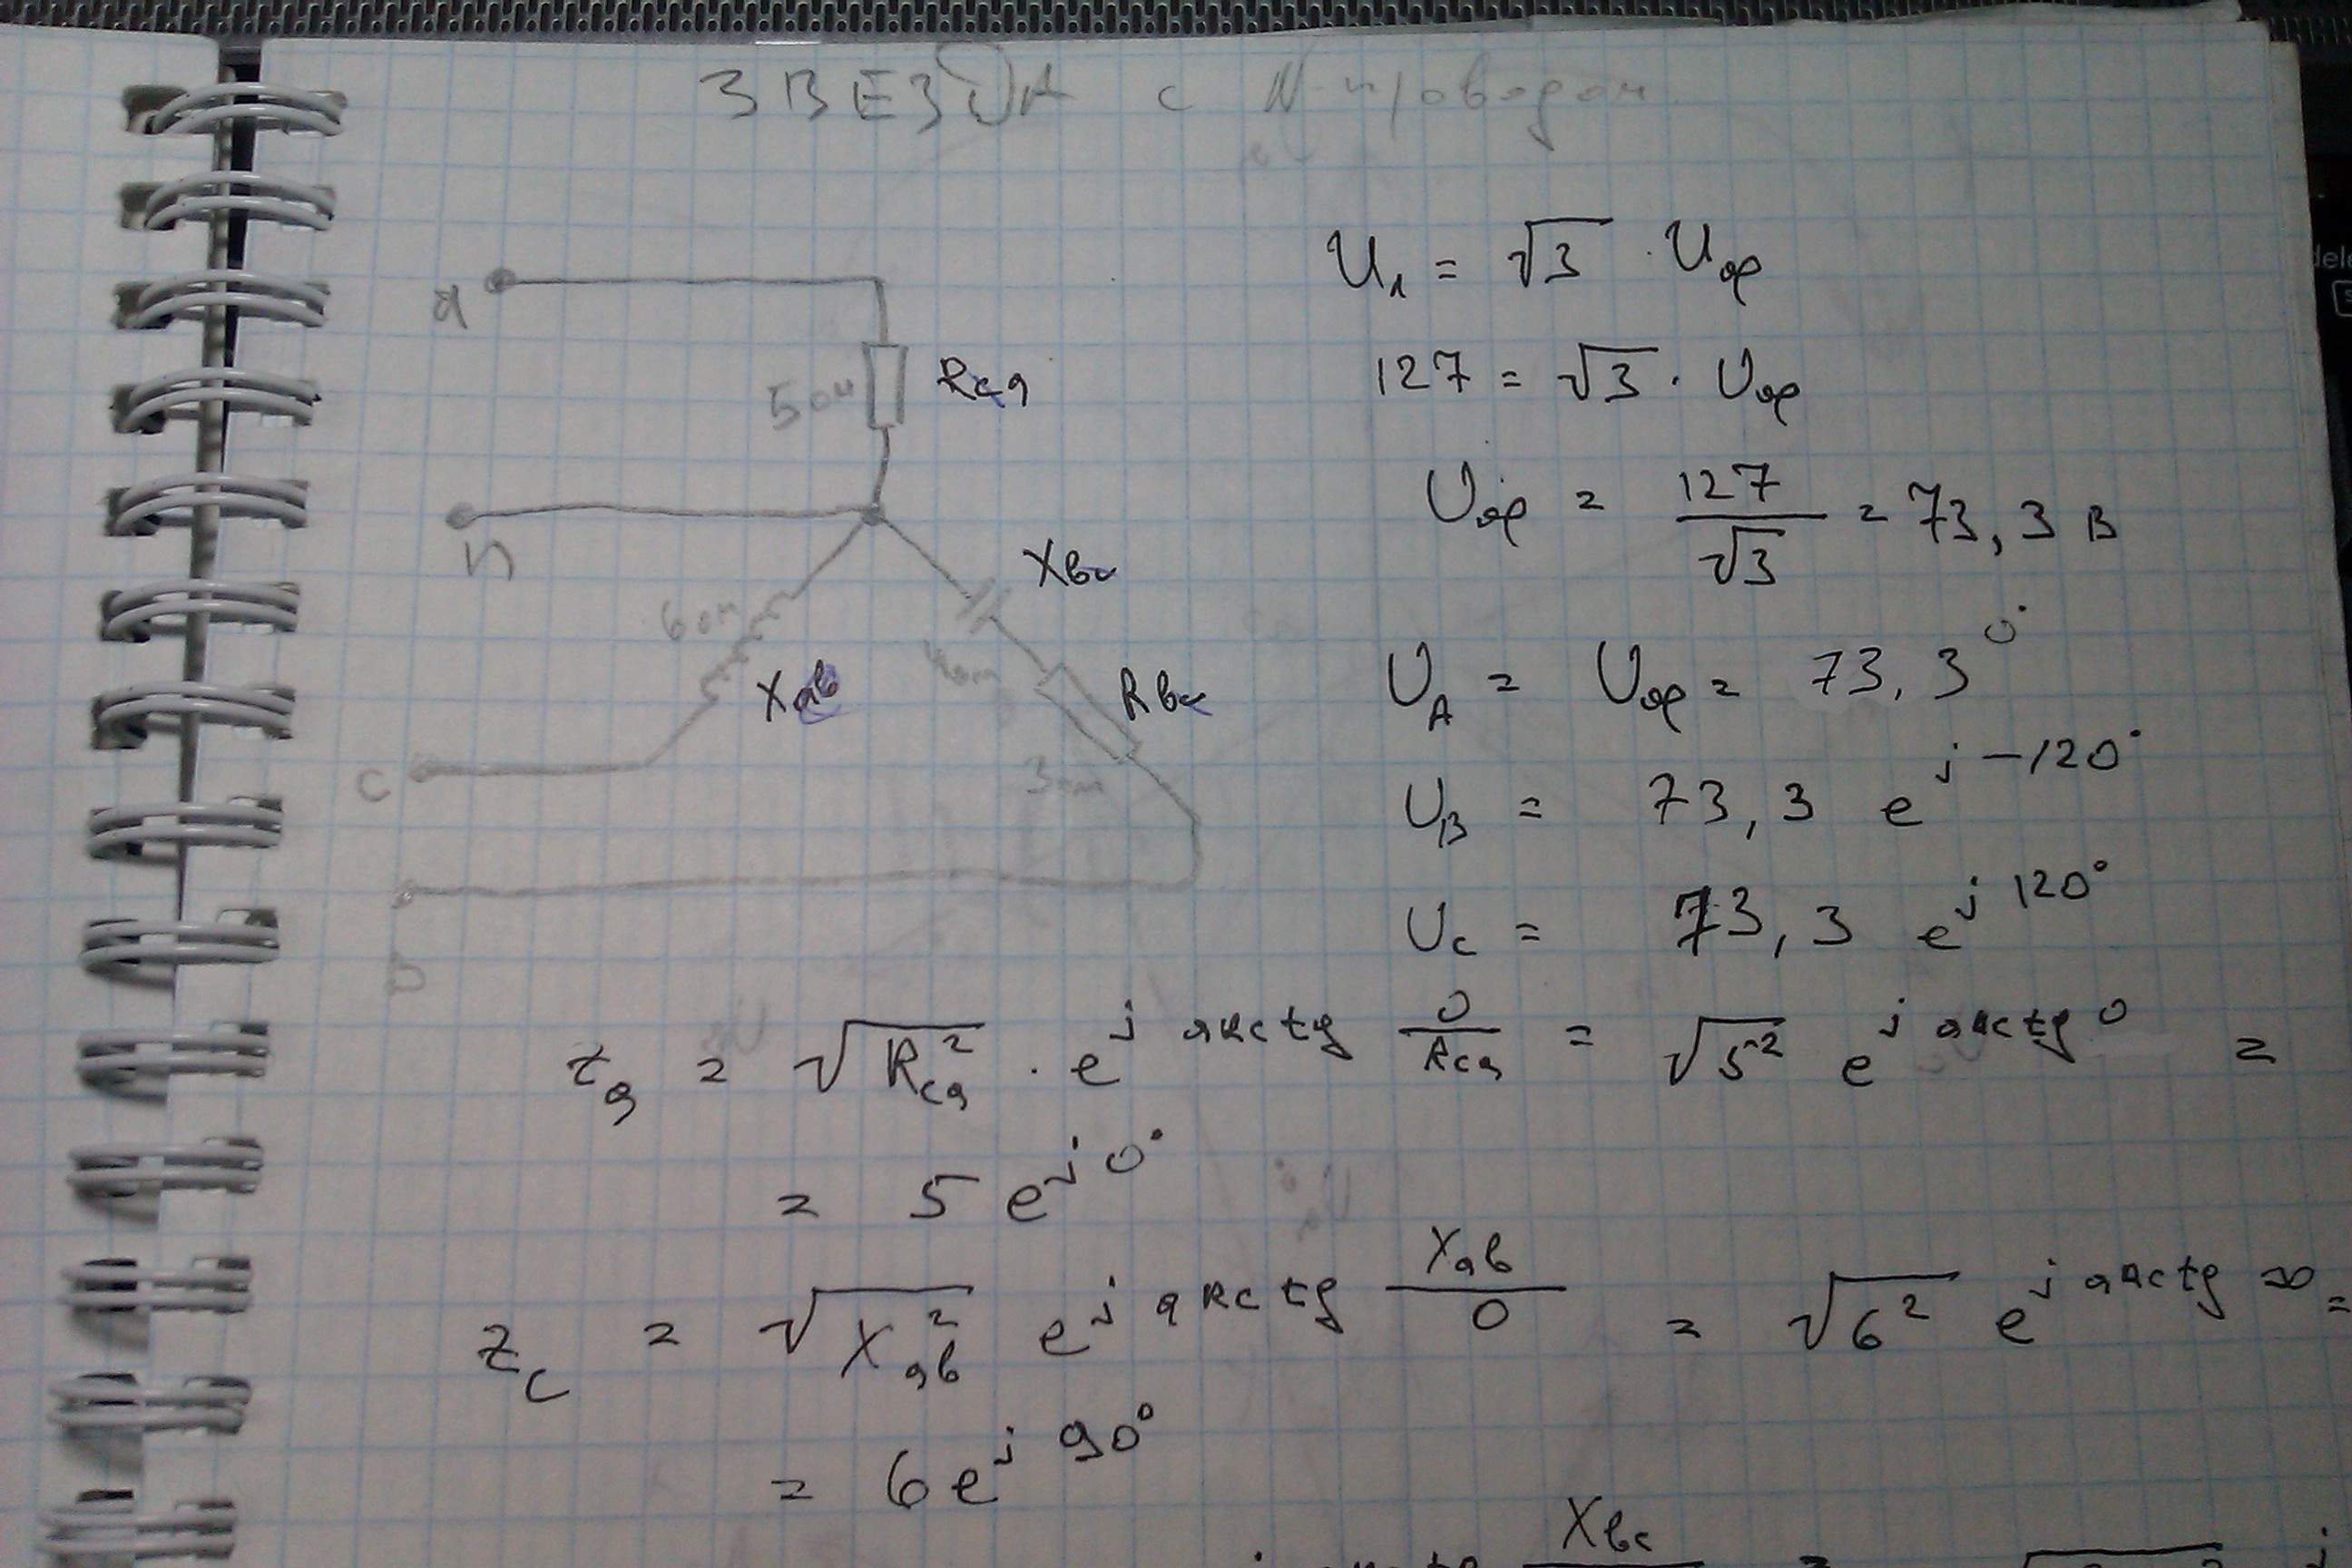 ЗВЕЗДА с N-проводом
a
5 ом
Rca
n
Xbc
6 ом
4 ом
Xab
Rbc
3 ом
c
b
Uл = √3 · Uф
127 = √3 · Uф
Uф = 127/√3 = 73,3 В
U_A = Uф = 73,3 0°
U_B = 73,3 e^j -120°
U_C = 73,3 e^j 120°
z_a = √(Rca²) · e^j arctg 0/Rca = √(5²) e^j arctg 0 =
= 5 e^j 0°
z_c = √(Xab²) e^j arctg Xab/0 = √(6²) e^j arctg ∞ =
= 6 e^j 90°
Xbc